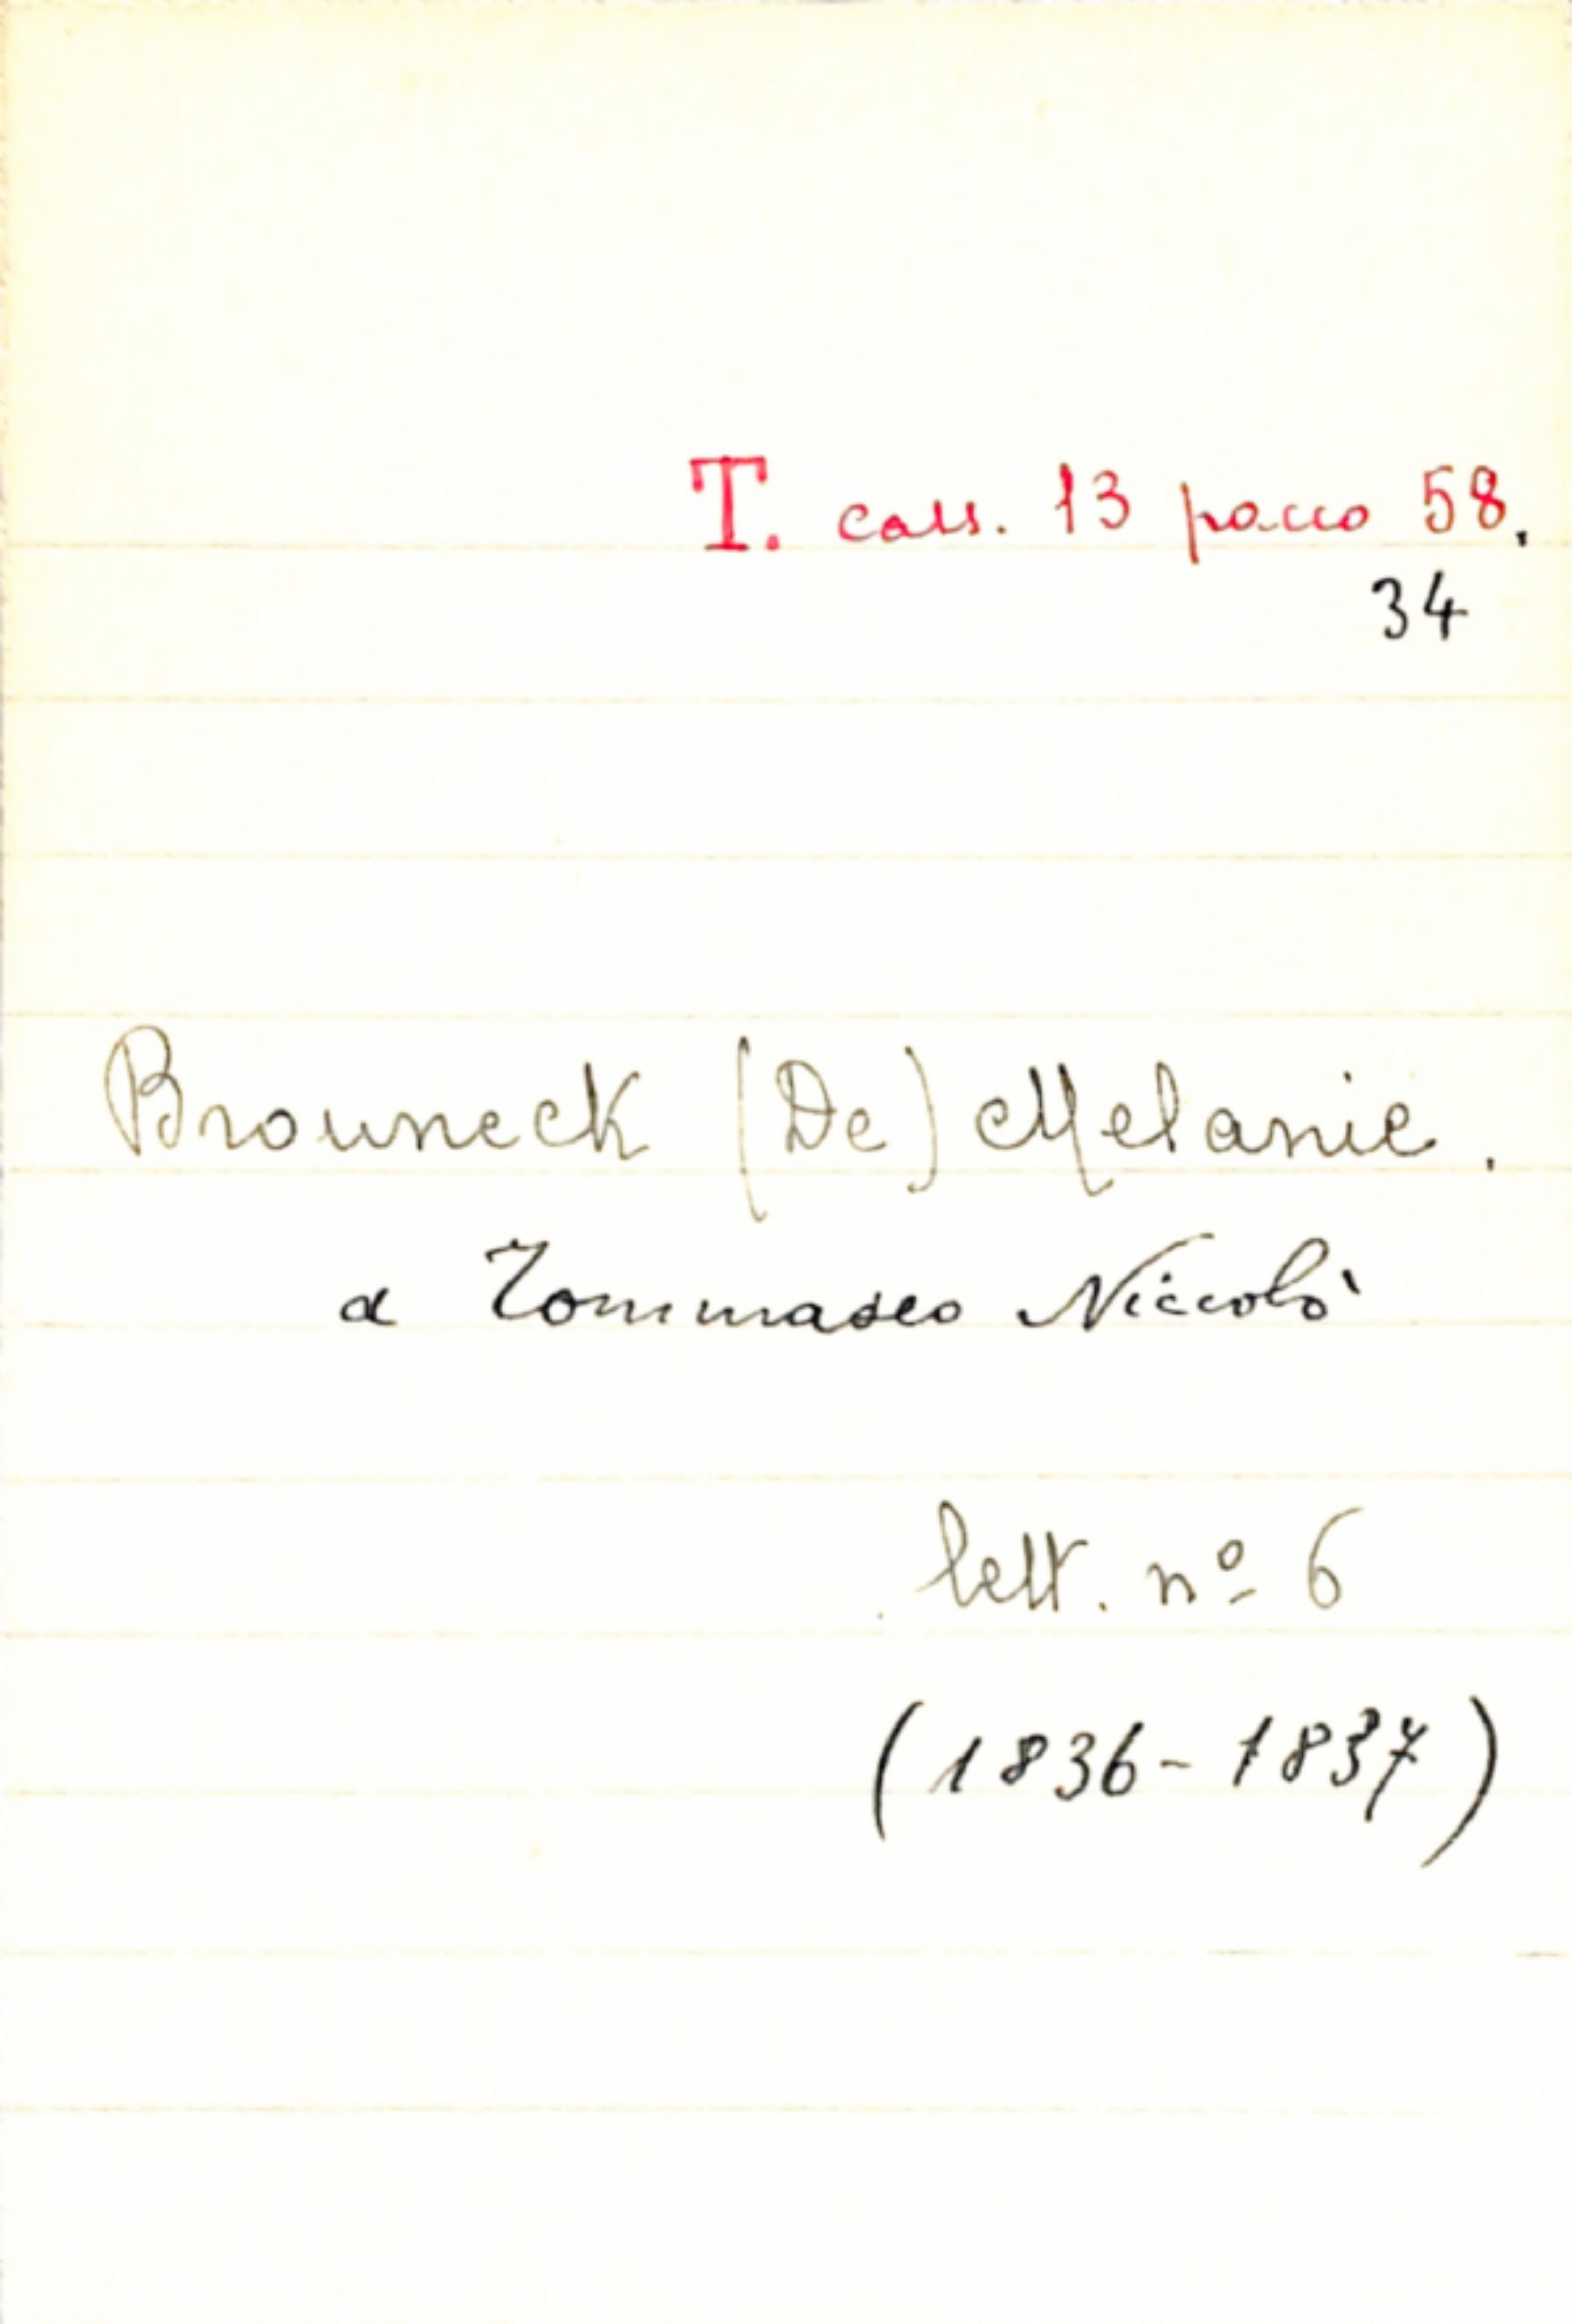 T. cass. 13 pacco 58.
34
Brouneck (De) Melanie.
a Tommaseo Niccolò
lett. nº 6
(1836-1837)